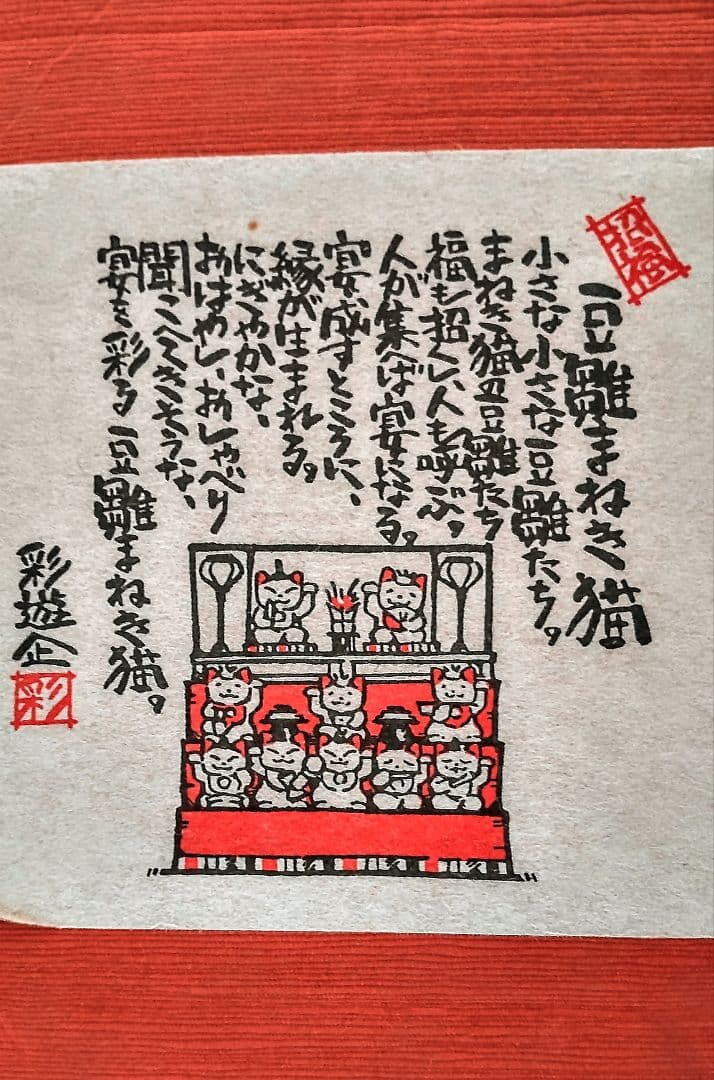 招福
豆雛まねき猫
小さな小さな豆雛たち。
まねき猫の豆雛たち
福も招くし、人も呼ぶ。
人が集へば宴になる。
宴、成すところに、
縁が生まれる。
にぎやかな、
おはやし、おしゃべり
聞こへてきそうな、
宴を彩る豆雛まねき猫。
彩遊企
彩